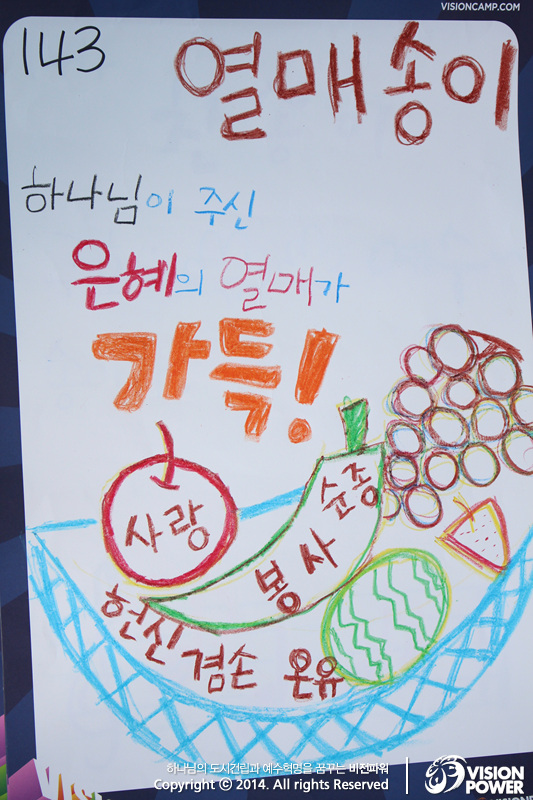 VISIONCAMP.COM
143
열매송이
하나님이 주신
은혜의 열매가
가득!
사랑
순종
봉사
헌신 겸손 온유
하나님의 도시건립과 예수혁명을 꿈꾸는 비전파워
Copyright ⓒ 2014. All rights Reserved
VISION
POWER